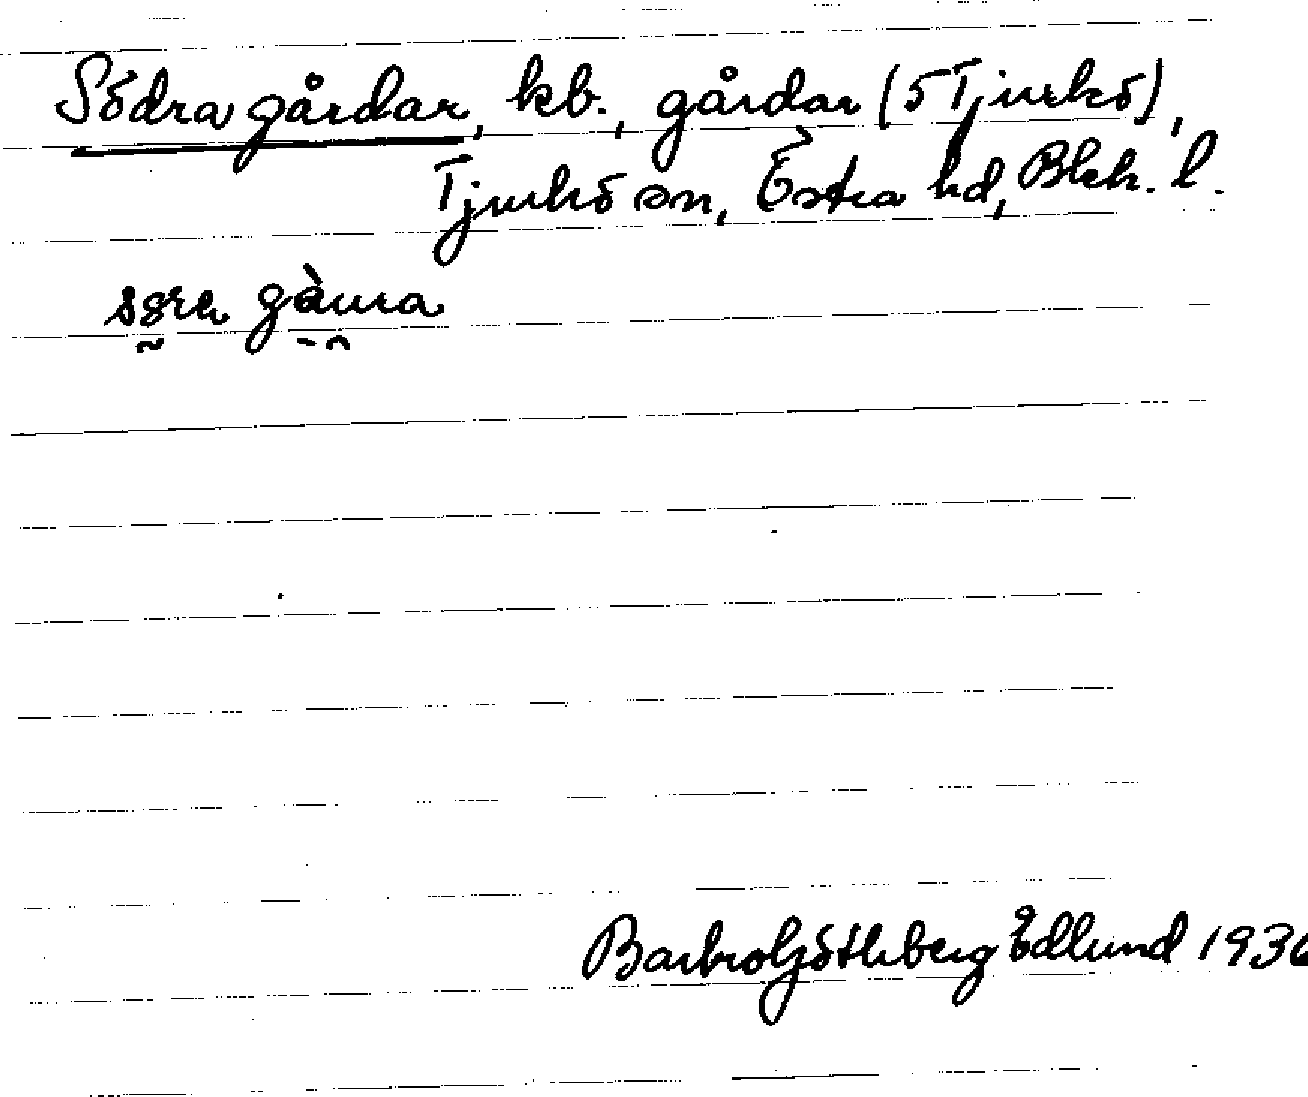 Södra gårdar, kb., gårdar (5 Tjurkö),
Tjurkö sn, Östra hd, Blek. l.
gàura
Barbro Götlberg Ådlund 1936